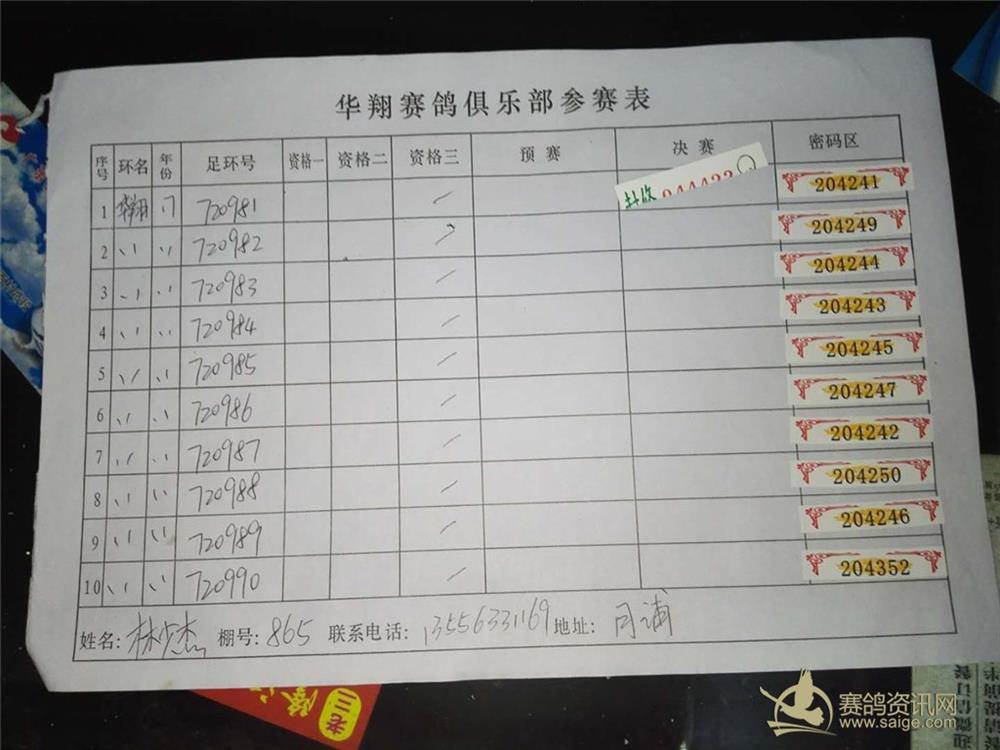 华翔赛鸽俱乐部参赛表
序号 环名 年份 足环号 资格一 资格二 资格三 预 赛 决 赛 密码区
1 华翔 17 720981 / 204241
2 〃 〃 720982 / 204249
3 〃 〃 720983 / 204244
4 〃 〃 720984 / 204243
5 〃 〃 720985 / 204245
6 〃 〃 720986 / 204247
7 〃 〃 720987 / 204242
8 〃 〃 720988 / 204250
9 〃 〃 720989 / 204246
10 〃 〃 720990 / 204352
姓名: 林少杰 棚号: 865 联系电话: 13556331169 地址: 月浦
老三
赛鸽资讯网
www.saige.com